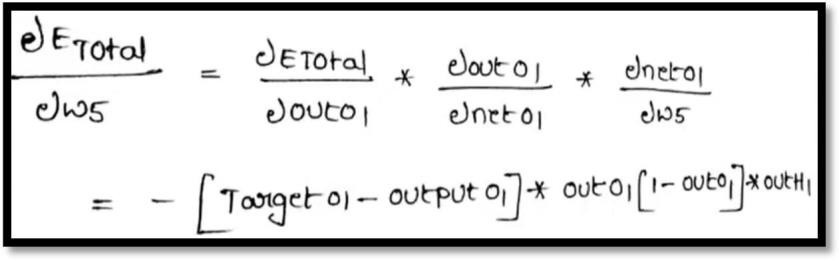 ∂E_Total / ∂w5 = ∂E_Total / ∂out o1 * ∂out o1 / ∂net o1 * ∂net o1 / ∂w5
= - [Target o1 - output o1] * out o1 [1 - out o1] * out H1